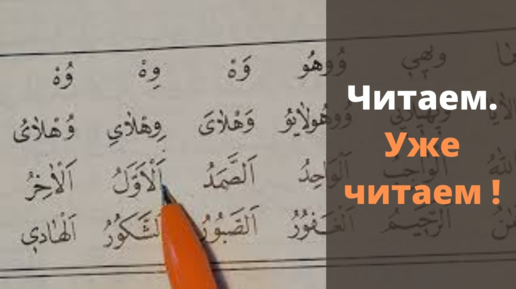 وُوهُو وَهْ وِهْ وُهْ
وُوهُولَايُو وَهْلَاىَ وِهْلَاىِ وُهْلَاىُ
اَلْوَاجِبُ اَلْوَاحِدُ اَلصَّمَدُ اَلْاَوَّلُ اَلْاٰخِرُ
اَلرَّحِيمُ اَلْغَفُورُ اَلصَّبُورُ اَلشَّكُورُ اَلْهَادِي
Читаем.
Уже
читаем !